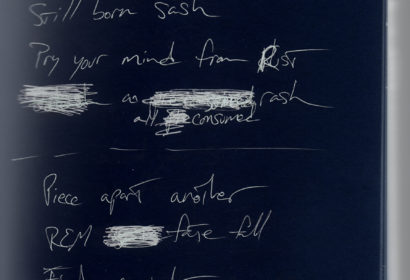 Still born sash
Pry your mind from Rust
as rash
all consumed
Piece apart another
REM false fall